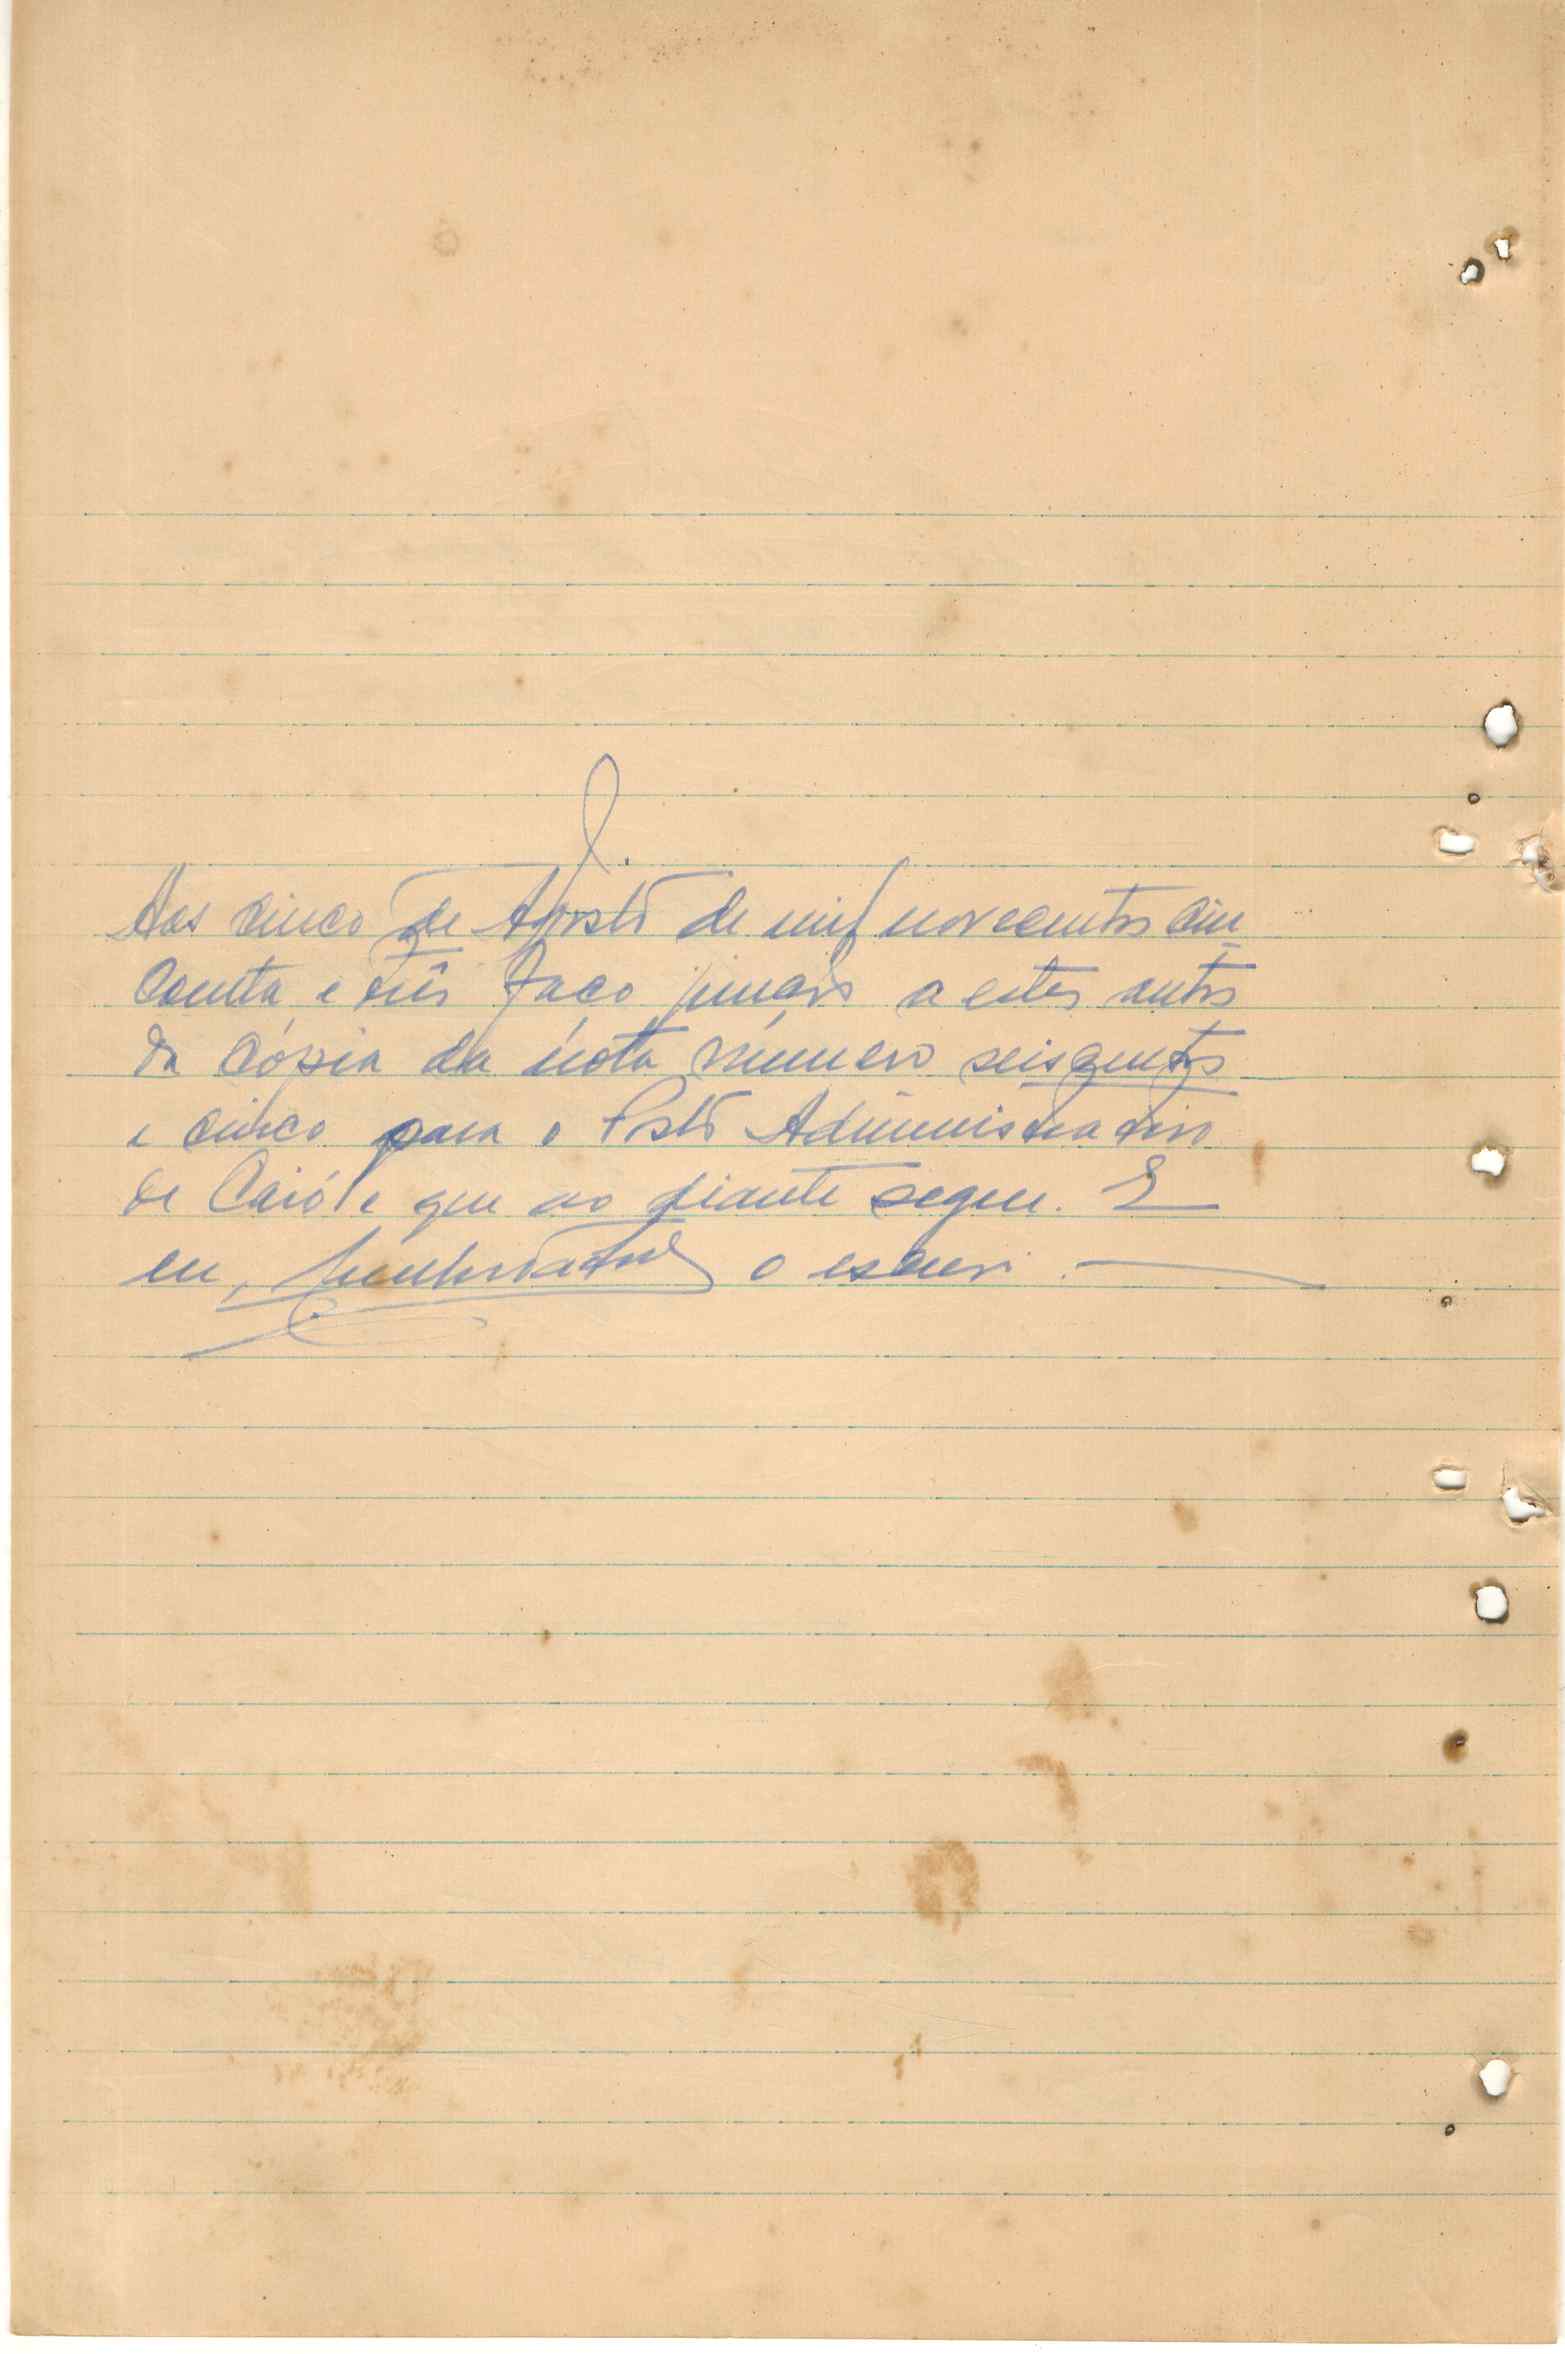 J.
Aos cinco de Agosto de mil novecentos cin
coenta e três faço junção a estes autos
da cópia da nota número seiscentos
e cinco para o Posto Administrativo
de Caió e que ao diante segue. E
eu, o escrevi.